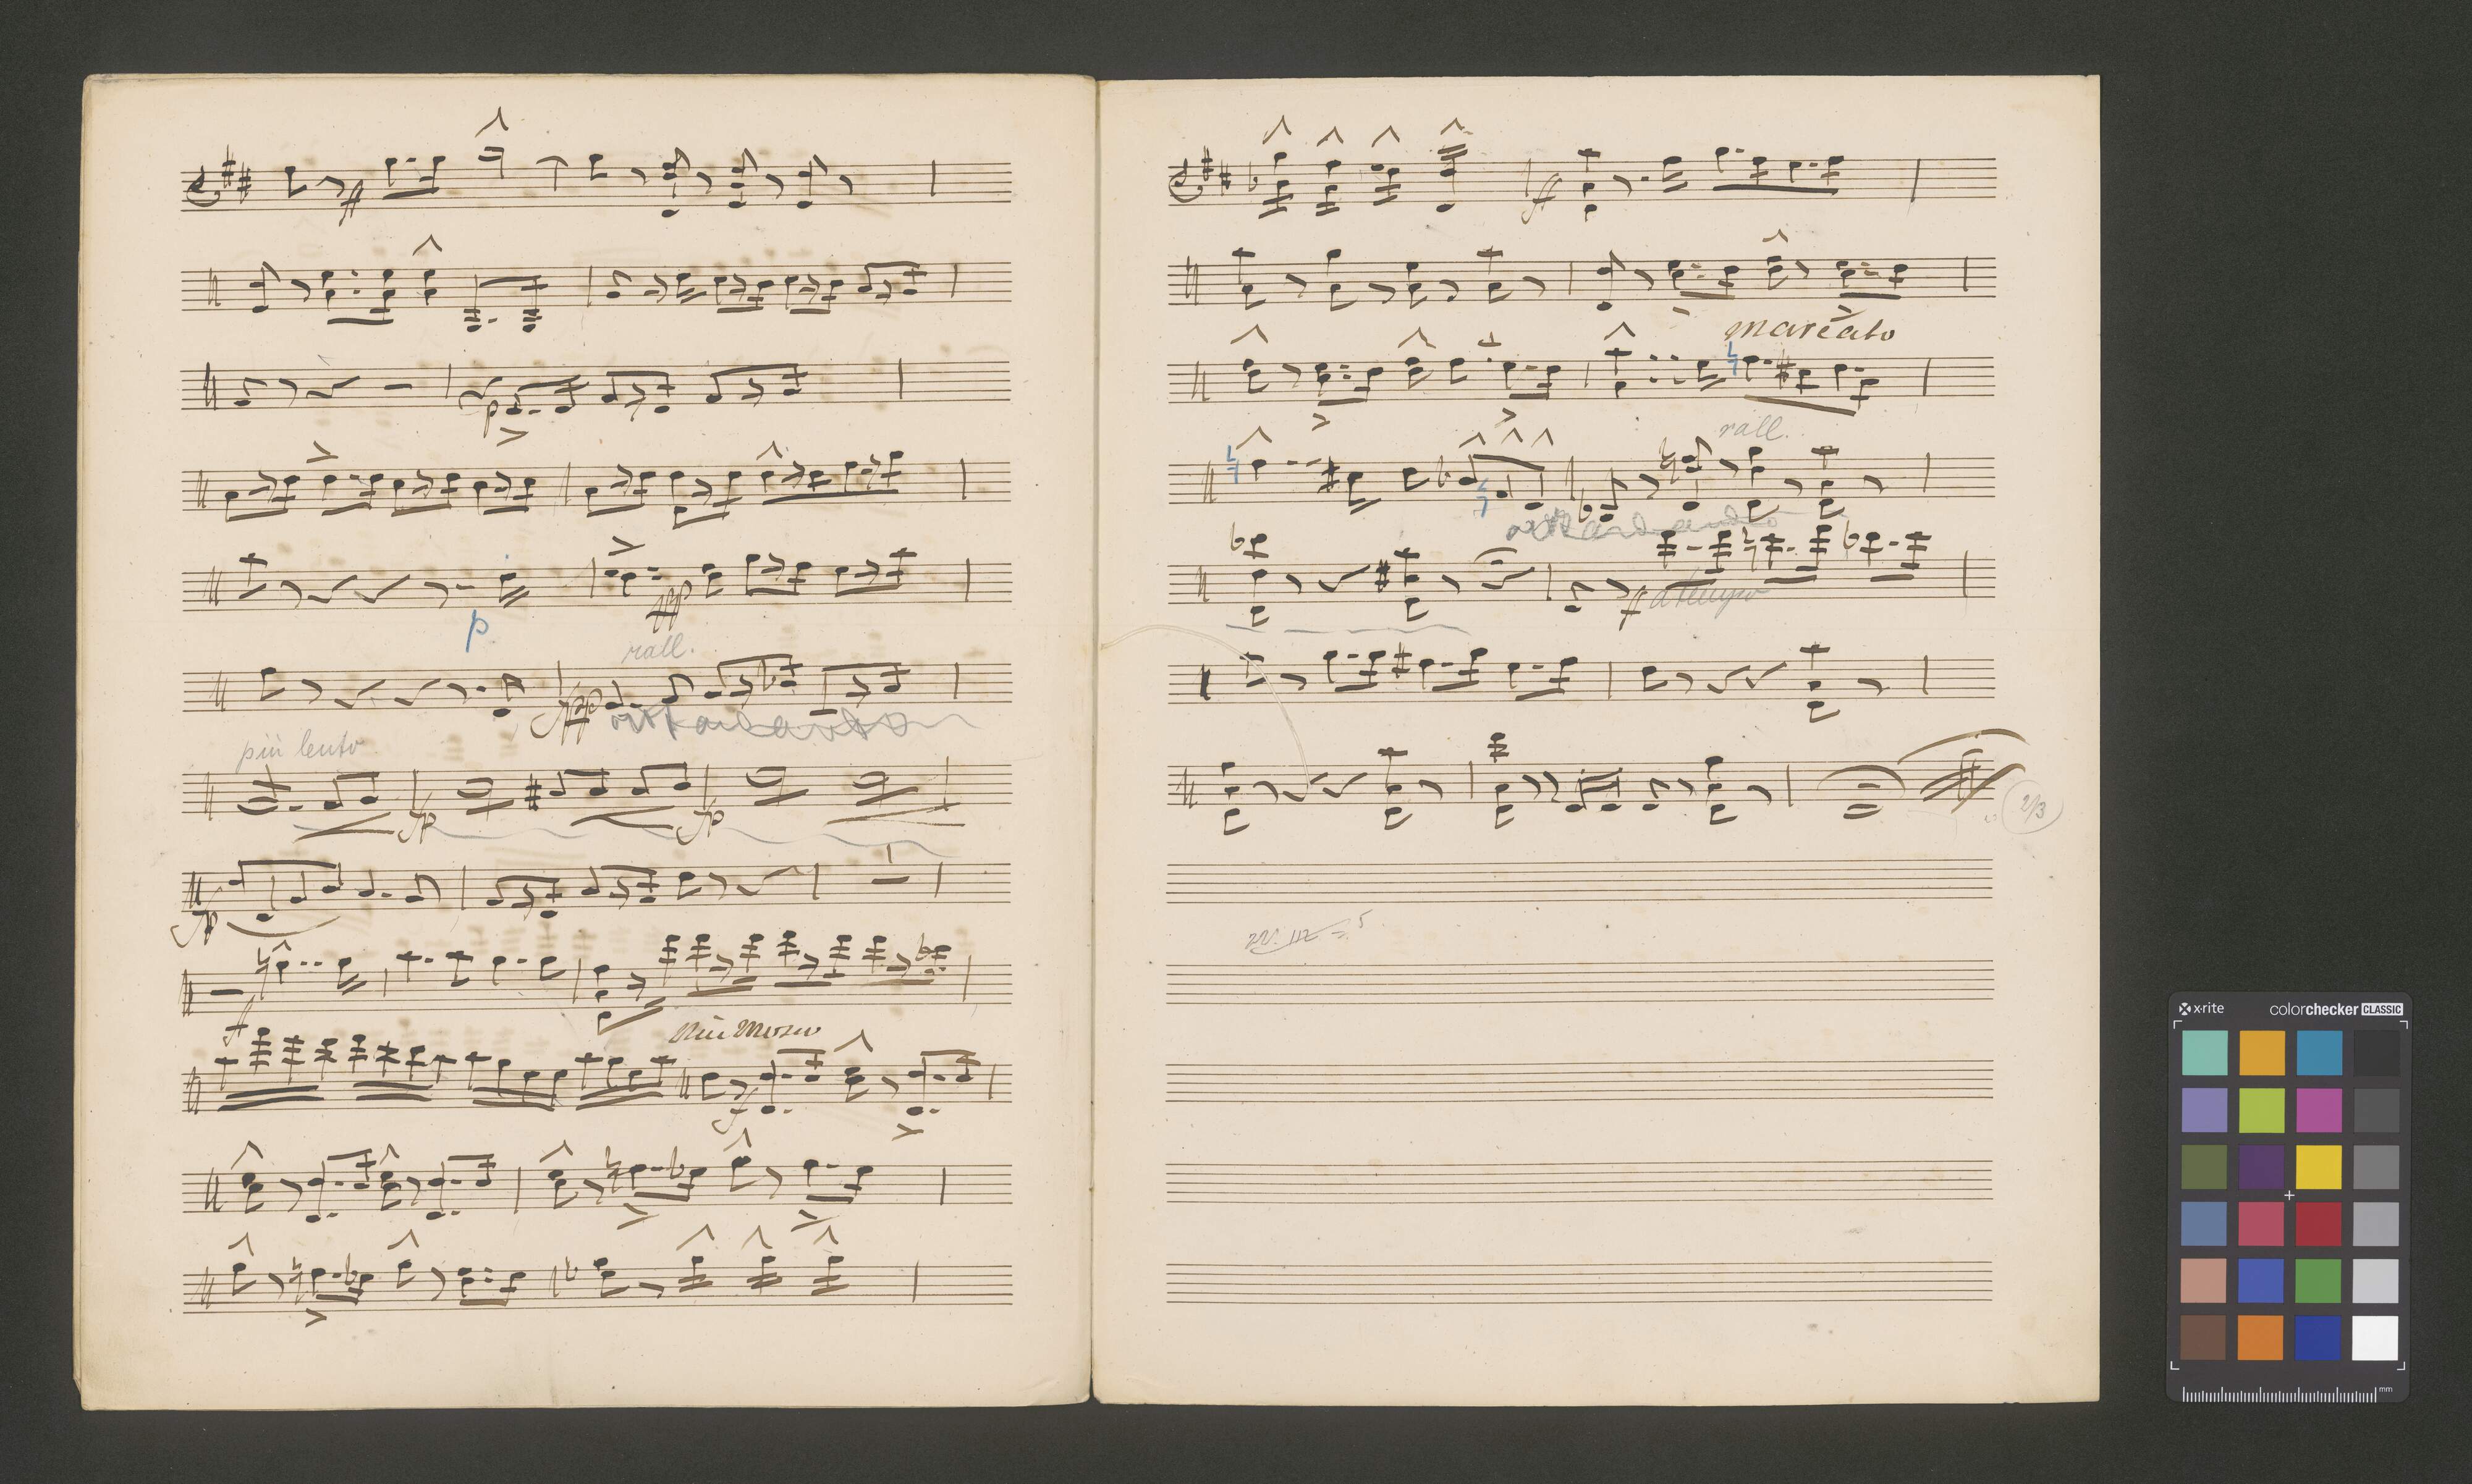 ff
p
fpp
p
rall.
fpp
più lento
fp fp
fp
f
Più Mosso
f
ff
marcato
rall.
ff a tempo
2/3
x-rite colorchecker CLASSIC
mm